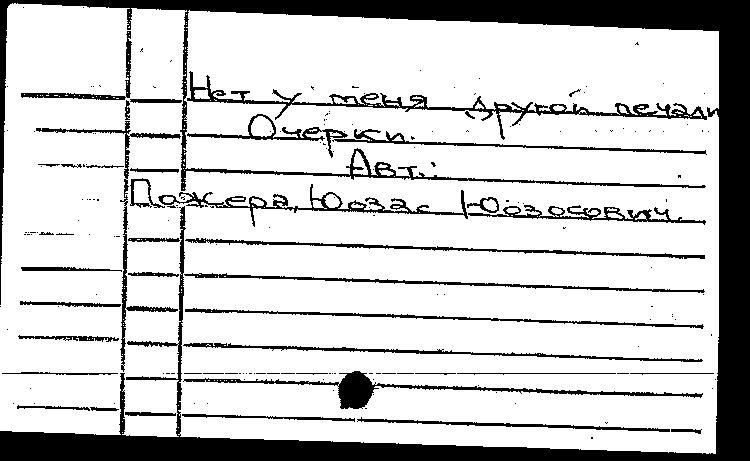 Нет у меня другой печали
Очерки.
Авт.:
Пожера, Юозас Юозосович.